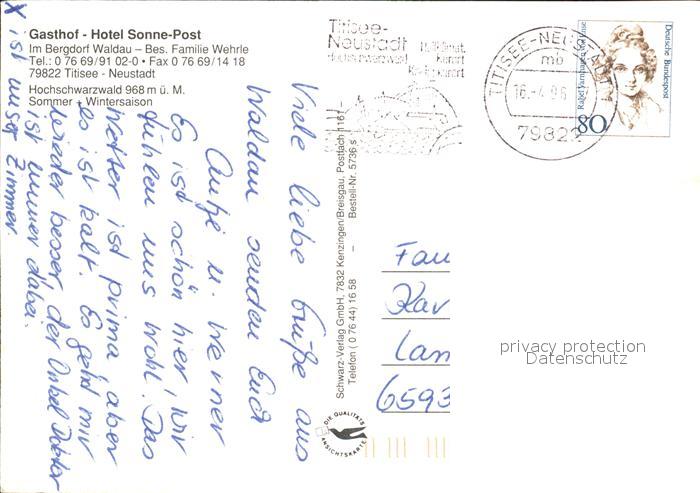 Gasthof - Hotel Sonne-Post
Im Bergdorf Waldau – Bes. Familie Wehrle
Tel.: 0 76 69/91 02-0 • Fax 0 76 69/14 18
79822 Titisee - Neustadt
Hochschwarzwald 968 m ü. M.
Sommer + Wintersaison
Viele liebe Grüße aus
Waldau senden Euch
Antje u. Werner
Es ist schön hier, wir
fühlen uns wohl. Das
Wetter ist prima aber
es ist kalt. Es geht mir
wieder besser der Onkel Doktor
ist immer dabei.
X ist unser Zimmer.
Schwarz-Verlag GmbH, 7832 Kenzingen/Breisgau, Postfach 1161 –
Telefon ( 0 76 44) 16 58 – Bestell-Nr. 5736 s
DIE QUALITÄTS
ANSICHTSKARTE
Titisee-
Neustadt
Hochschwarzwald
Kurort
TITISEE-NEUSTADT
mb
16.-4.96
79822
Deutsche Bundespost
Rahel Varnhagen von Ense
80
Fam
Kar
Lan
6593
privacy protection
Datenschutz